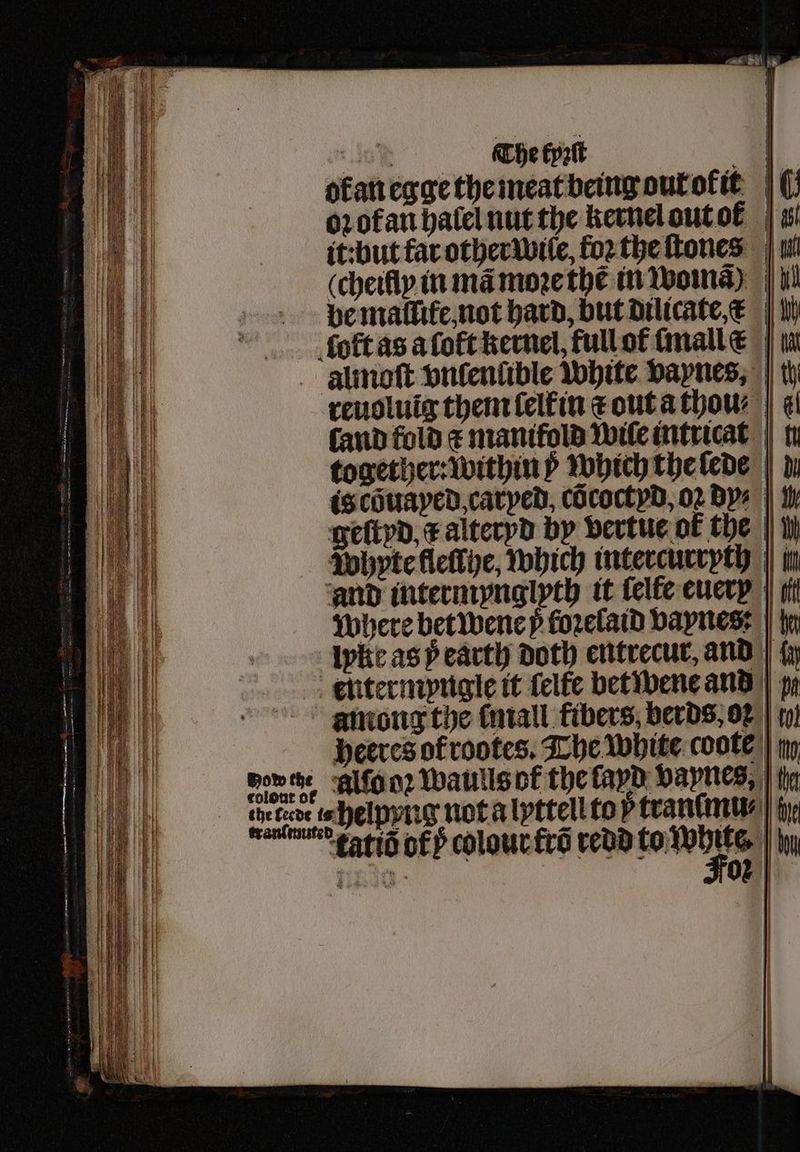 The fyrſt
of an egge the meat being out of it
or of an haſel nut the kernel out of
it: but far otherwiſe, for the ſtones
(cheifly in mā more thē in womā)
be maſſife, not hard, but dilicate, &
ſoft as a ſoft kernel, full of ſmall &
almoſt vnſenſible white vaynes,
reuoluīg them ſelf in & out a thou-
ſand fold & manifold wiſe intricat
together: within þͤ which the ſede
is cōuayed, caryed, cōcoctyd, or dy-
geſtyd, & alteryd by vertue of the
whyte fleſſhe, which intercurryth
and intermynglyth it ſelfe euery
where betwene þͤ foreſaid vaynes:
lyke as þͤ earth doth entrecur, and
entermyngle it ſelfe betwene and
among the ſmall fibers, berds, or
heeres of rootes. The white coote
alſo or waulls of the ſayd vaynes,
helpyng not a lyttell to þͤ tranſmu-
tatiō of þͤ colour frō redd to white.
For
How the
colour of
the ſeede is
tranſmuted